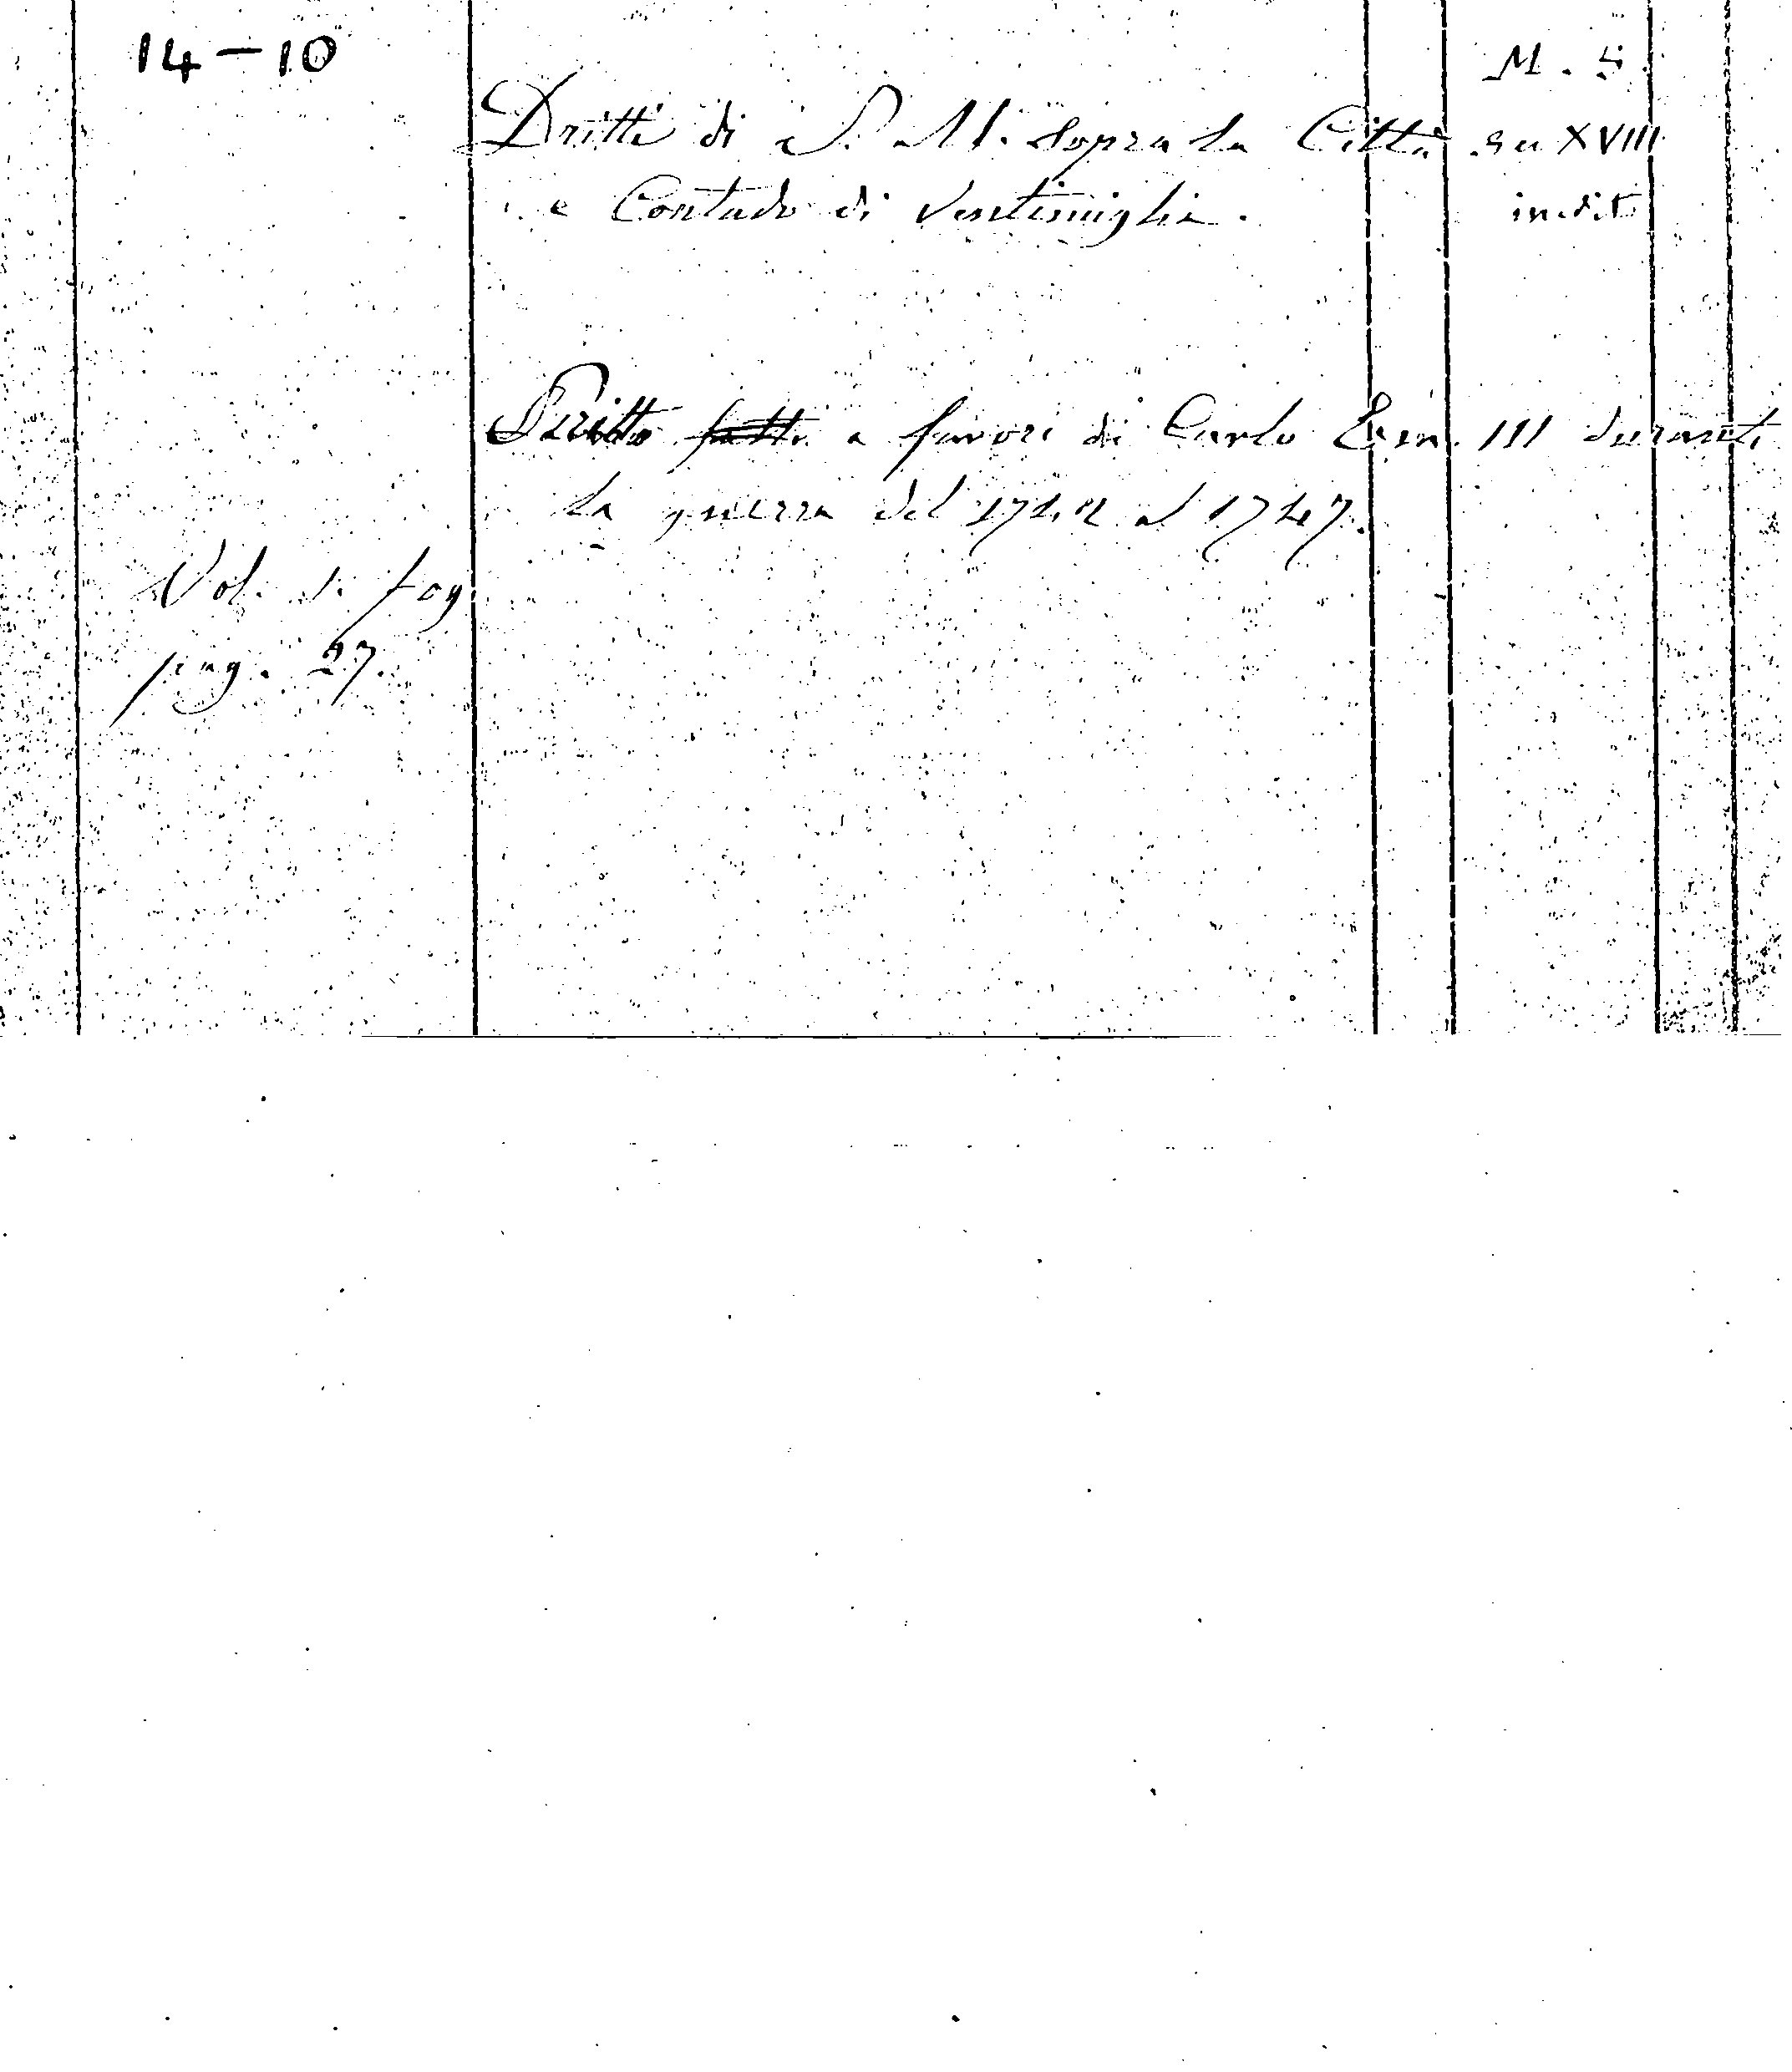 14-10
M. S.
Dritti di S. M. sopra la Città
e Contado di Ventimiglia.
sec XVIII
inedit
Scritto fatto a favore di Carlo Em. III durante
la guerra del 1742 al 1747.
Vol. in fog.
pag. 27.